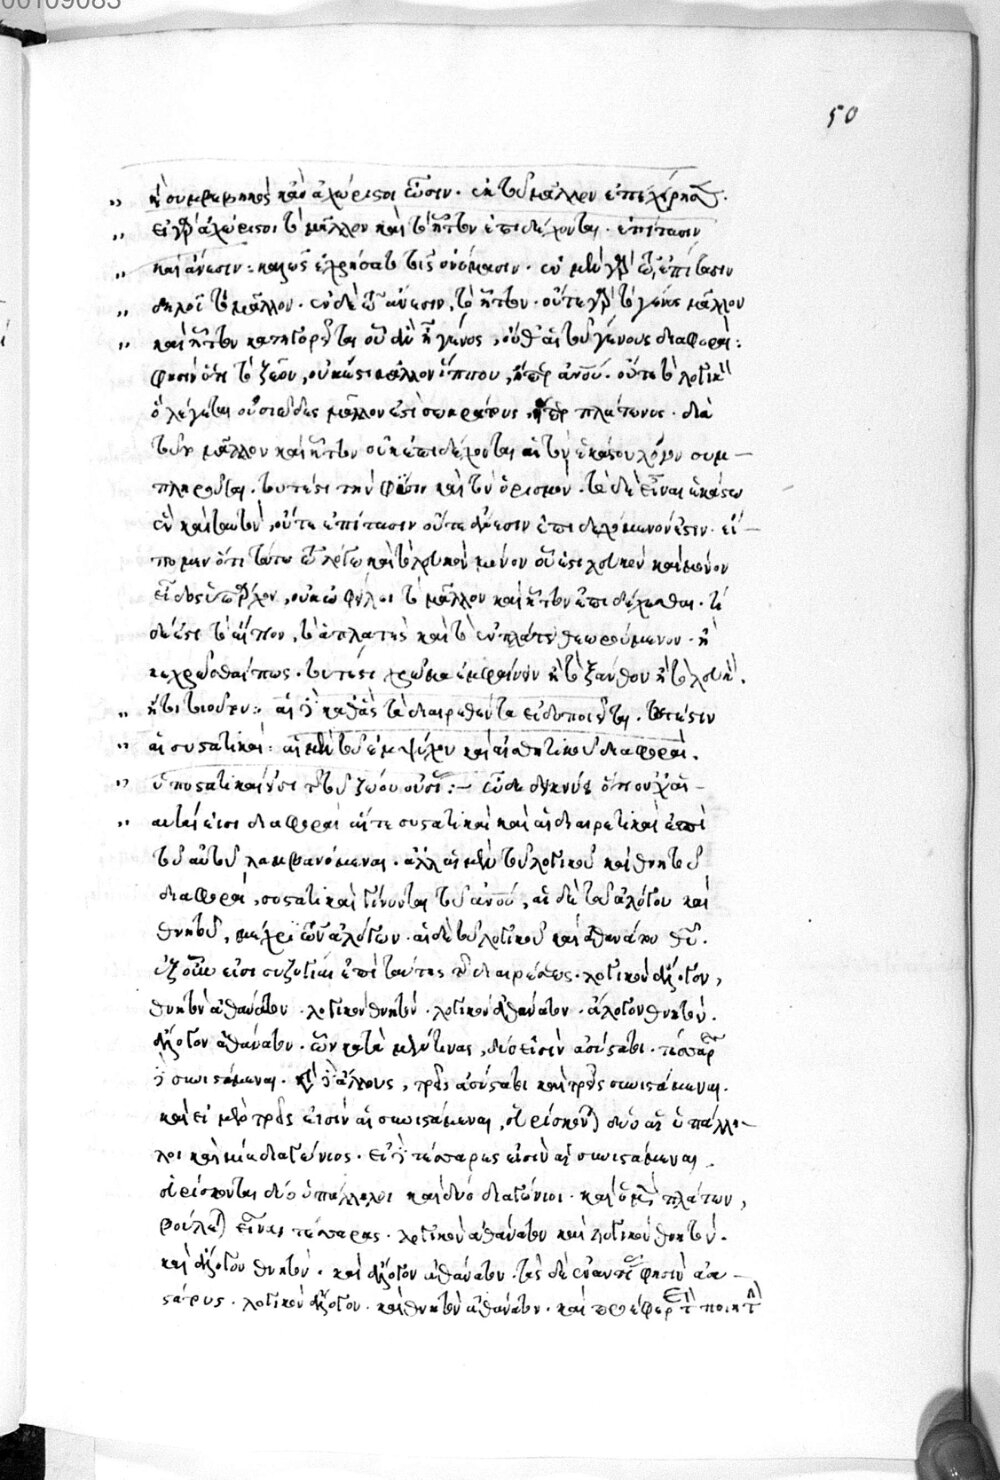 50
ἢ συμβεβηκὸς κἂν ἀχώριστοι ὦσιν. ἐκ τοῦ μᾶλλον ἐπιχείρησις.
εἰ γὰρ ἀχώριστοι τὸ μᾶλλον καὶ τὸ ἧττον ἐπιδέχονται. ἐπίτασιν
καὶ ἄνεσιν: καλῶς ἐχρήσατο τοῖς ὀνόμασιν. ἐν μὲν γὰρ τῷ ἐπίτασιν
δηλοῖ τὸ μᾶλλον. ἐν δὲ τῷ ἄνεσιν, τὸ ἧττον. οὔτε γὰρ τὸ γένος μᾶλλον
καὶ ἧττον κατηγορεῖται οὗ ἂν ᾖ γένος, οὔθ' αἱ τοῦ γένους διαφοραί:
φησὶν ὅτι τὸ ζῷον, οὐκ ἔστι μᾶλλον ἵππου, ἤπερ ἀνου. οὔτε τὸ λογικὸν
ὃ λέγεται οὐσιωδῶς μᾶλλον ἐστὶ σωκράτους, ἤπερ πλάτωνος. διὰ
τοῦτο μᾶλλον καὶ ἧττον οὐκ ἐπιδέχονται αἱ τὸν ἑκάστου λόγον συμ-
πληροῦσαι. τουτέστι τὴν φύσιν καὶ τὸν ὁρισμόν. τὸ δὲ εἶναι ἑκάστῳ
ἓν καὶ ταυτὸν, οὔτε ἐπίτασιν οὔτε ἄνεσιν ἐπιδεχόμενόν ἐστιν. εἴ-
πομεν ὅτι τὸ λευκὸν μόνον οὗ ἐστι λευκὸν καὶ μόνον
εἶδος ὑπάρχον, οὐκ ὠφείλει τὸ μᾶλλον καὶ ἧττον ἐπιδέχεσθαι. τί
δέ ἐστι τὸ αἴτιον, τὸ ἀπλατὲς καὶ τὸ ἐν πλάτει θεωρούμενον. ἢ
κεχρῶσθαί πως. τουτέστι χρῶμα ἐμφαίνειν ἢ τὸ ξανθὸν ἢ τὸ λευκὸν.
ἤ τι τοιοῦτον: αἱ δὲ καθ' ἃς τὰ διαιρεθέντα εἰδοποιεῖται. τουτέστιν
αἱ συστατικαί: αἱ μὲν τοῦ ἐμψύχου καὶ αἰσθητικοῦ διαφοραὶ.
συστατικαί εἰσι τῆς τοῦ ζώου οὐσίας:
αὗταί εἰσι διαφοραὶ αἵ τε συστατικαὶ καὶ αἱ διαιρετικαὶ ἐπὶ
τοῦ αὐτοῦ λαμβανόμεναι. ἀλλ' αἱ μὲν τοῦ λογικοῦ καὶ θνητοῦ
διαφοραὶ, συστατικαὶ γίνονται τοῦ ἀνου, αἱ δὲ τοῦ ἀλόγου καὶ
θνητοῦ, τῶν ἀλόγων. αἱ δὲ τοῦ λογικοῦ καὶ ἀθανάτου θυ.
ἓξ οὖν εἰσι συζυγίαι ἐπὶ ταύτης τῆς διαιρέσεως. λογικὸν ἄλογον,
θνητὸν ἀθάνατον. λογικὸν θνητόν. λογικὸν ἀθάνατον. ἄλογον θνητόν.
ἄλογον ἀθάνατον. ὧν κατὰ μέν τινας, δύο εἰσὶν ἀσύστατοι. τέσσαρες
δὲ συνιστάμεναι. κατὰ δὲ ἄλλους, τρεῖς ἀσύστατοι καὶ τρεῖς συνιστάμεναι.
καὶ εἰ μὲν τρεῖς εἰσὶν αἱ συνιστάμεναι, εὑρίσκονται δύο αἱ ὑπάλλη-
λοι καὶ μία διαγώνιος. εἰ δὲ τέσσαρες εἰσὶν αἱ συνιστάμεναι.
εὑρίσκονται δύο ὑπάλληλοι καὶ δύο διαγώνιοι. καὶ ὁ μὲν πλάτων,
βούλεται εἶναι τέσσαρας. λογικὸν ἀθάνατον καὶ λογικὸν θνητόν.
καὶ ἄλογον θνητόν. καὶ ἄλογον ἀθάνατον. τὰς δὲ ἐναντίας φησὶν ἀσυ-
στάτους. λογικὸν ἄλογον. καὶ θνητὸν ἀθάνατον. καὶ